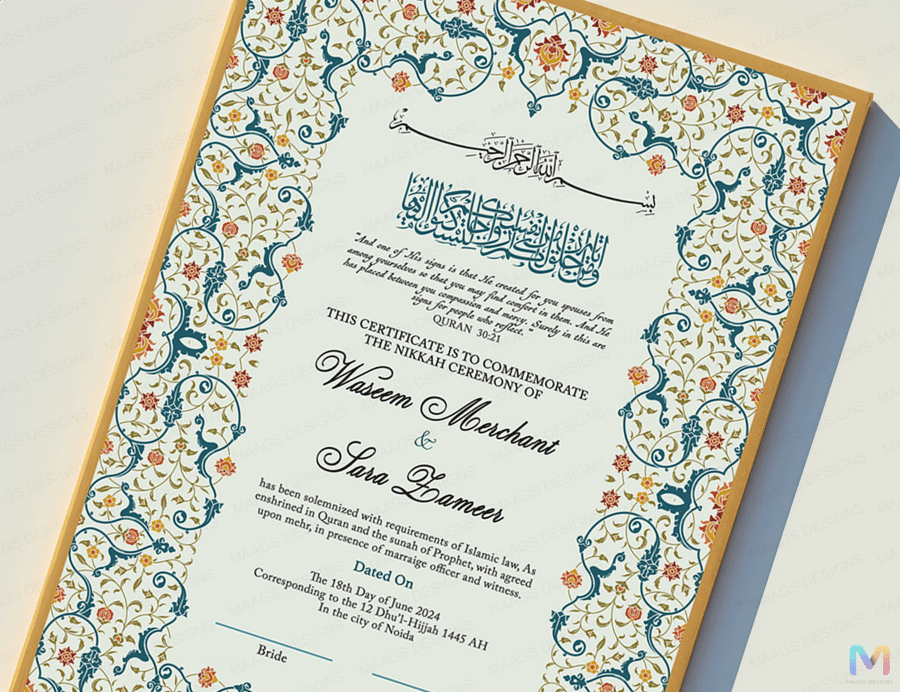 بسم الله الرحمن الرحيم
“And one of His signs is that He created for you spouses from
among yourselves so that you may find comfort in them. And He
has placed between you compassion and mercy. Surely in this are
signs for people who reflect.”
QURAN 30:21
THIS CERTIFICATE IS TO COMMEMORATE
THE NIKKAH CEREMONY OF
Waseem Merchant
&
Sara Zameer
has been solemnized with requirements of Islamic law, As
enshrined in Quran and the sunah of Prophet, with agreed
upon mehr, in presence of marraige officer and witness.
Dated On
The 18th Day of June 2024
Corresponding to the 12 Dhu'l-Hijjah 1445 AH
In the city of Noida
Bride
MAAGS DESIGNS